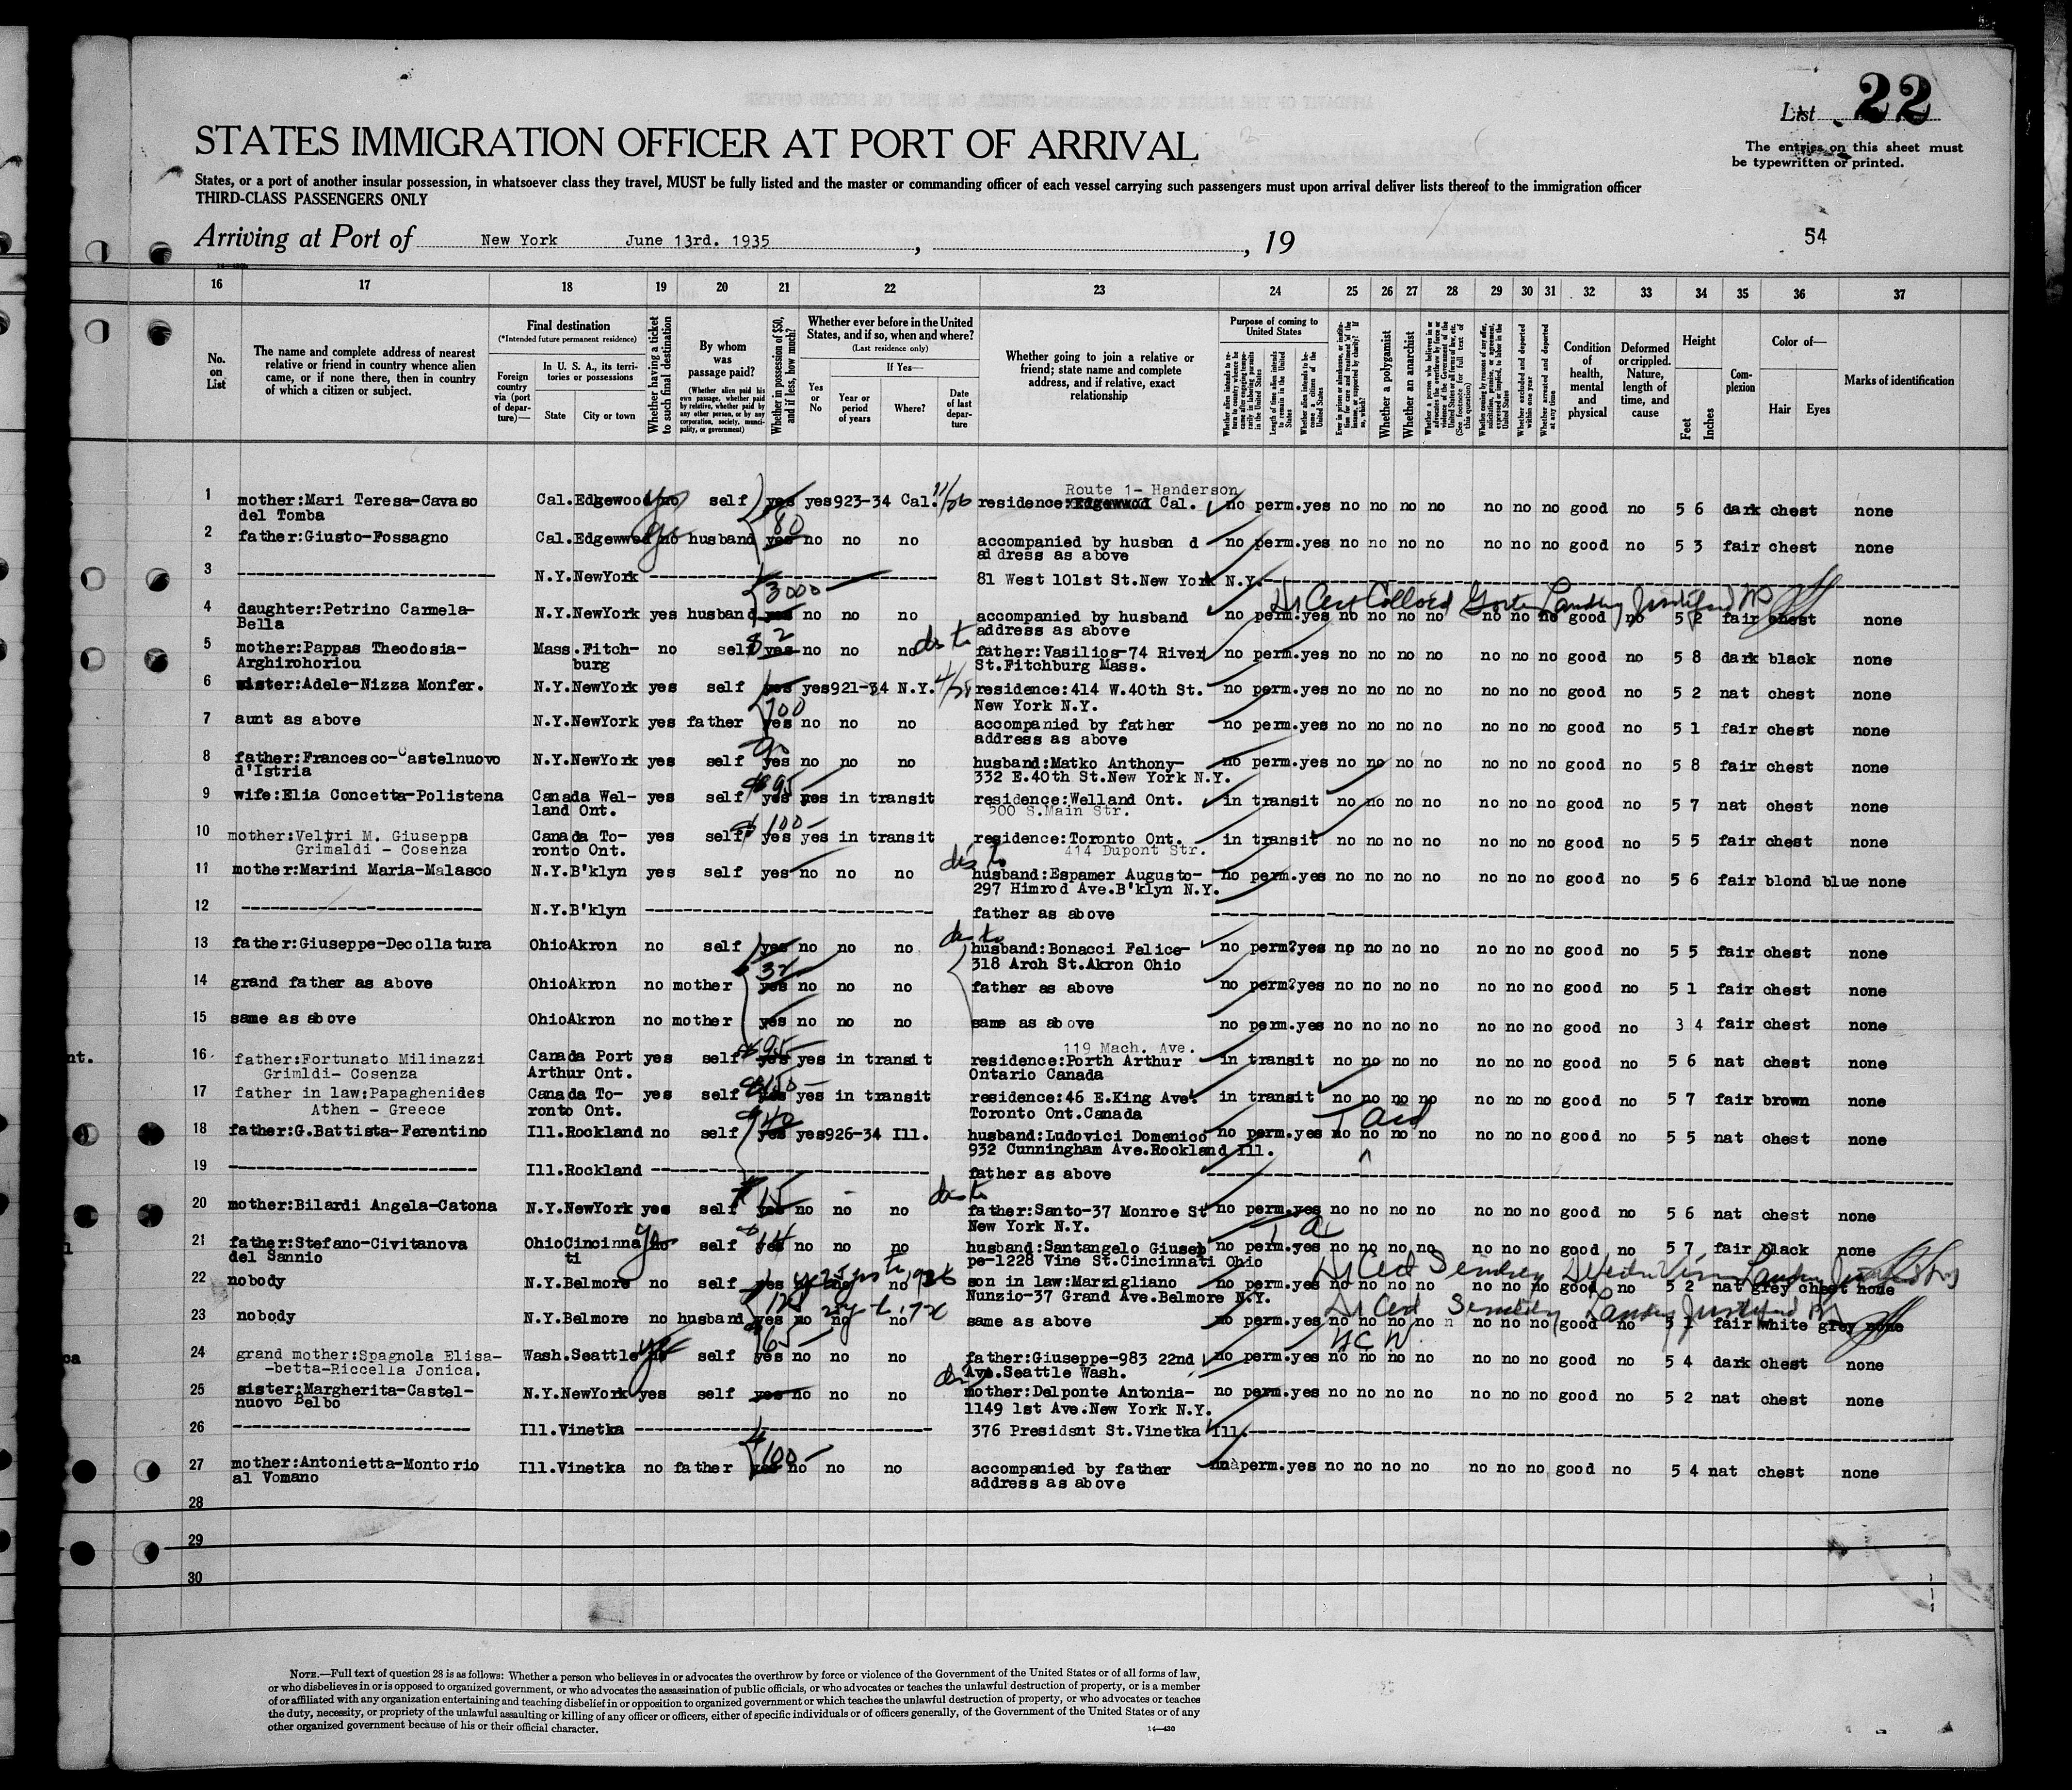 List 22
The entries on this sheet must
be typewritten or printed.
STATES IMMIGRATION OFFICER AT PORT OF ARRIVAL
States, or a port of another insular possession, in whatsoever class they travel, MUST be fully listed and the master or commanding officer of each vessel carrying such passengers must upon arrival deliver lists thereof to the immigration officer
THIRD-CLASS PASSENGERS ONLY
Arriving at Port of New York June 13rd. 1935 , , 19
54
16 17 18 19 20 21 22 23 24 25 26 27 28 29 30 31 32 33 34 35 36 37
No. on List
The name and complete address of nearest relative or friend in country whence alien came, or if none there, then in country of which a citizen or subject.
Final destination
(*Intended future permanent residence)
Foreign country via (port of departure)—
In U. S. A., its territories or possessions
State City or town
Whether having a ticket to such final destination
By whom was passage paid?
(Whether alien paid his own passage, whether paid by relative, whether paid by any other person, or by any corporation, society, municipality, or government)
Whether in possession of $50, and if less, how much?
Whether ever before in the United States, and if so, when and where?
(Last residence only)
Yes or No
If Yes—
Year or period of years Where? Date of last departure
Whether going to join a relative or friend; state name and complete address, and if relative, exact relationship
Purpose of coming to United States
Length of time alien intends to remain in the United States
Whether alien intends to become a citizen of the United States
Whether a polygamist
Whether an anarchist
(See footnote for full text of this question)
Whether excluded and deported within one year
Whether arrested and deported at any time
Condition of health, mental and physical
Deformed or crippled. Nature, length of time, and cause
Height
Feet Inches
Complexion
Color of—
Hair Eyes
Marks of identification
Route 1- Handerson
1 mother:Mari Teresa-Cavaso Cal.Edgewood no self yes yes923-34 Cal. residence:Edgewood Cal. no perm.yes no no no no no no no good no 5 6 dark chest none
del Tomba
80
2 father:Giusto-Fossagno Cal.Edgewwod no husband yes no no no accompanied by husban d no perm.yes no no no no no no no good no 5 3 fair chest none
ad dress as above
3 N.Y.NewYork 81 West 101st St.New York N.Y.
3000
4 daughter:Petrino Carmela- N.Y.NewYork yes husband yes no no no accompanied by husband no perm.yes no no no no no no no good no 5 2 fair chest none
Bella address as above
5 mother:Pappas Theodosia- Mass.Fitch- no self yes no no no father:Vasilios-74 River no perm.yes no no no no no no no good no 5 8 dark black none
Arghirohoriou burg St.Fitchburg Mass.
6 sister:Adele-Nizza Monfer. N.Y.NewYork yes self yes yes921-34 N.Y. residence:414 W.40th St. no perm.yes no no no no no no no good no 5 2 nat chest none
New York N.Y.
100
7 aunt as above N.Y.NewYork yes father yes no no no accompanied by father no perm.yes no no no no no no no good no 5 1 fair chest none
address as above
8 father:Francesco-Castelnuovo N.Y.NewYork yes self yes no no no husband:Matko Anthony- no perm.yes no no no no no no no good no 5 8 fair chest none
d'Istria 332 E.40th St.New York N.Y.
$95
9 wife:Elia Concetta-Polistena Canada Wel- yes self yes yes in transit residence:Welland Ont. in transit no no no no no no no good no 5 7 nat chest none
land Ont. 500 S.Main Str.
$100
10 mother:Veltri M. Giuseppa Canada To- yes self yes yes in transit residence:Toronto Ont. in transit no no no no no no no good no 5 5 fair chest none
Grimaldi - Cosenza ronto Ont. 414 Dupont Str.
11 mother:Marini Maria-Malasco N.Y.B'klyn yes self yes no no no husband:Espamer Augusto- no perm.yes no no no no no no no good no 5 6 fair blond blue none
297 Himrod Ave.B'klyn N.Y.
12 N.Y.B'klyn father as above
13 father:Giuseppe-Decollatura OhioAkron no self yes no no no husband:Bonacci Felice- no perm?yes no no no no no no no good no 5 5 fair chest none
318 Arch St.Akron Ohio
32
14 grand father as above OhioAkron no mother yes no no no father as above no perm?yes no no no no no no no good no 5 1 fair chest none
15 same as above OhioAkron no mother yes no no no same as above no perm.yes no no no no no no no good no 3 4 fair chest none
119 Mach. Ave.
16 father:Fortunato Milinazzi Canada Port yes self yes yes in transit residence:Porth Arthur in transit no no no no no no no good no 5 6 nat chest none
Grimldi- Cosenza Arthur Ont. Ontario Canada
17 father in law:Papaghenides Canada To- yes self yes yes in transit residence:46 E.King Ave. in transit no no no no no no no good no 5 7 fair brown none
Athen - Greece ronto Ont. Toronto Ont.Canada
18 father:G.Battista-Ferentino Ill.Rockland no self yes yes926-34 Ill. husband:Ludovici Domenico no perm.yes no no no no no no no good no 5 5 nat chest none
932 Cunningham Ave.Rockland Ill.
19 Ill.Rockland father as above
15
20 mother:Bilardi Angela-Catona N.Y.NewYork yes self yes no no no father:Santo-37 Monroe St no perm.yes no no no no no no no good no 5 6 nat chest none
New York N.Y.
21 father:Stefano-Civitanova OhioCincinna no self yes no no no husband:Santangelo Giusep no perm.yes no no no no no no no good no 5 7 fair black none
del Sannio ti pe-1228 Vine St.Cincinnati Ohio
22 nobody N.Y.Belmore no self yes no son in law:Marzigliano no perm.yes no no no no no no no good no 5 2 nat grey chest none
Nunzio-37 Grand Ave.Belmore N.Y.
23 nobody N.Y.Belmore no husband yes no no no same as above no perm.yes no no no no n no no no good no 5 1 fair white grey none
65
24 grand mother:Spagnola Elisa- Wash.Seattle no self yes no no no father:Giuseppe-983 22nd no perm.yes no no no no no no no good no 5 4 dark chest none
-betta-Riccella Jonica. Ave.Seattle Wash.
25 sister:Margherita-Castel- N.Y.NewYork yes self yes no no no mother:Delponte Antonia- no perm.yes no no no no no no no good no 5 2 nat chest none
nuovo Belbo 1149 1st Ave.New York N.Y.
26 Ill.Vinetka 376 Presidsnt St.Vinetka Ill.
100
27 mother:Antonietta-Montorio Ill.Vinetka no father yes no no no accompanied by father perm.yes no no no no no no no good no 5 4 nat chest none
al Vomano address as above
28
29
30
NOTE.—Full text of question 28 is as follows: Whether a person who believes in or advocates the overthrow by force or violence of the Government of the United States or of all forms of law,
or who disbelieves in or is opposed to organized government, or who advocates the assassination of public officials, or who advocates or teaches the unlawful destruction of property, or is a member
of or affiliated with any organization entertaining and teaching disbelief in or opposition to organized government or which teaches the unlawful destruction of property, or who advocates or teaches
the duty, necessity, or propriety of the unlawful assaulting or killing of any officer or officers, either of specific individuals or of officers generally, of the Government of the United States or of any
other organized government because of his or their official character.
14—430